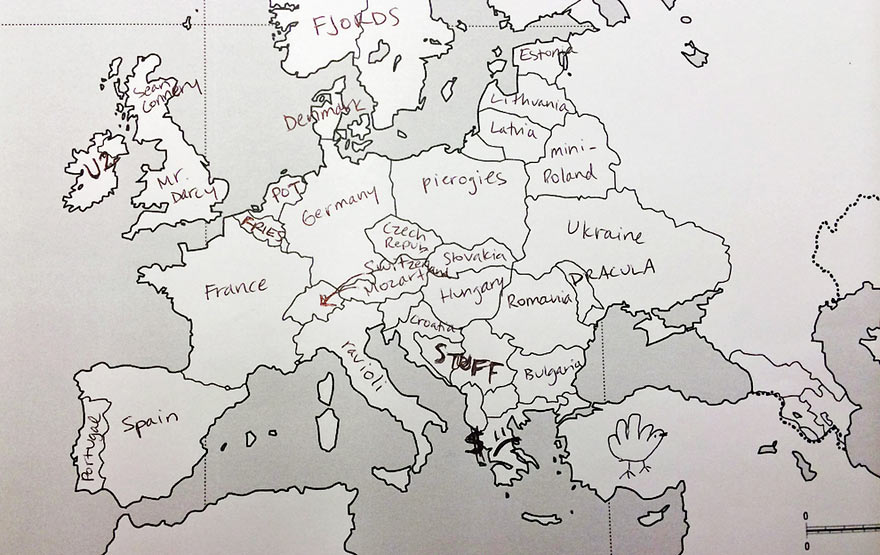 FJORDS
Estonia
Sean
Connery
Denmark
Lithuania
Latvia
U2
mini-
Poland
Mr.
Darcy
POT
Germany
pierogies
FRIES
Ukraine
Czech
Repub
Slovakia
Switzerland
Mozartland
France
DRACULA
Hungary
Romania
Croatia
STUFF
ravioli
Bulgaria
Spain
Portugal
$ :(
0
0